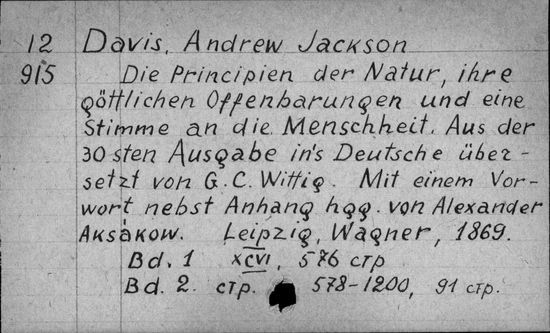 12 Davis, Andrew Jackson
915 Die Principien der Natur, ihre
göttlichen Offenbarungen und eine
Stimme an die Menschheit. Aus der
30sten Ausgabe in's Deutsche über-
setzt von G. C. Wittig. Mit einem Vor-
wort nebst Anhang hgg. von Alexander
Aksákow. Leipzig, Wagner, 1869.
Bd. 1 XCVI, 576 стр
Bd. 2. стр. 578-1200, 91 стр.